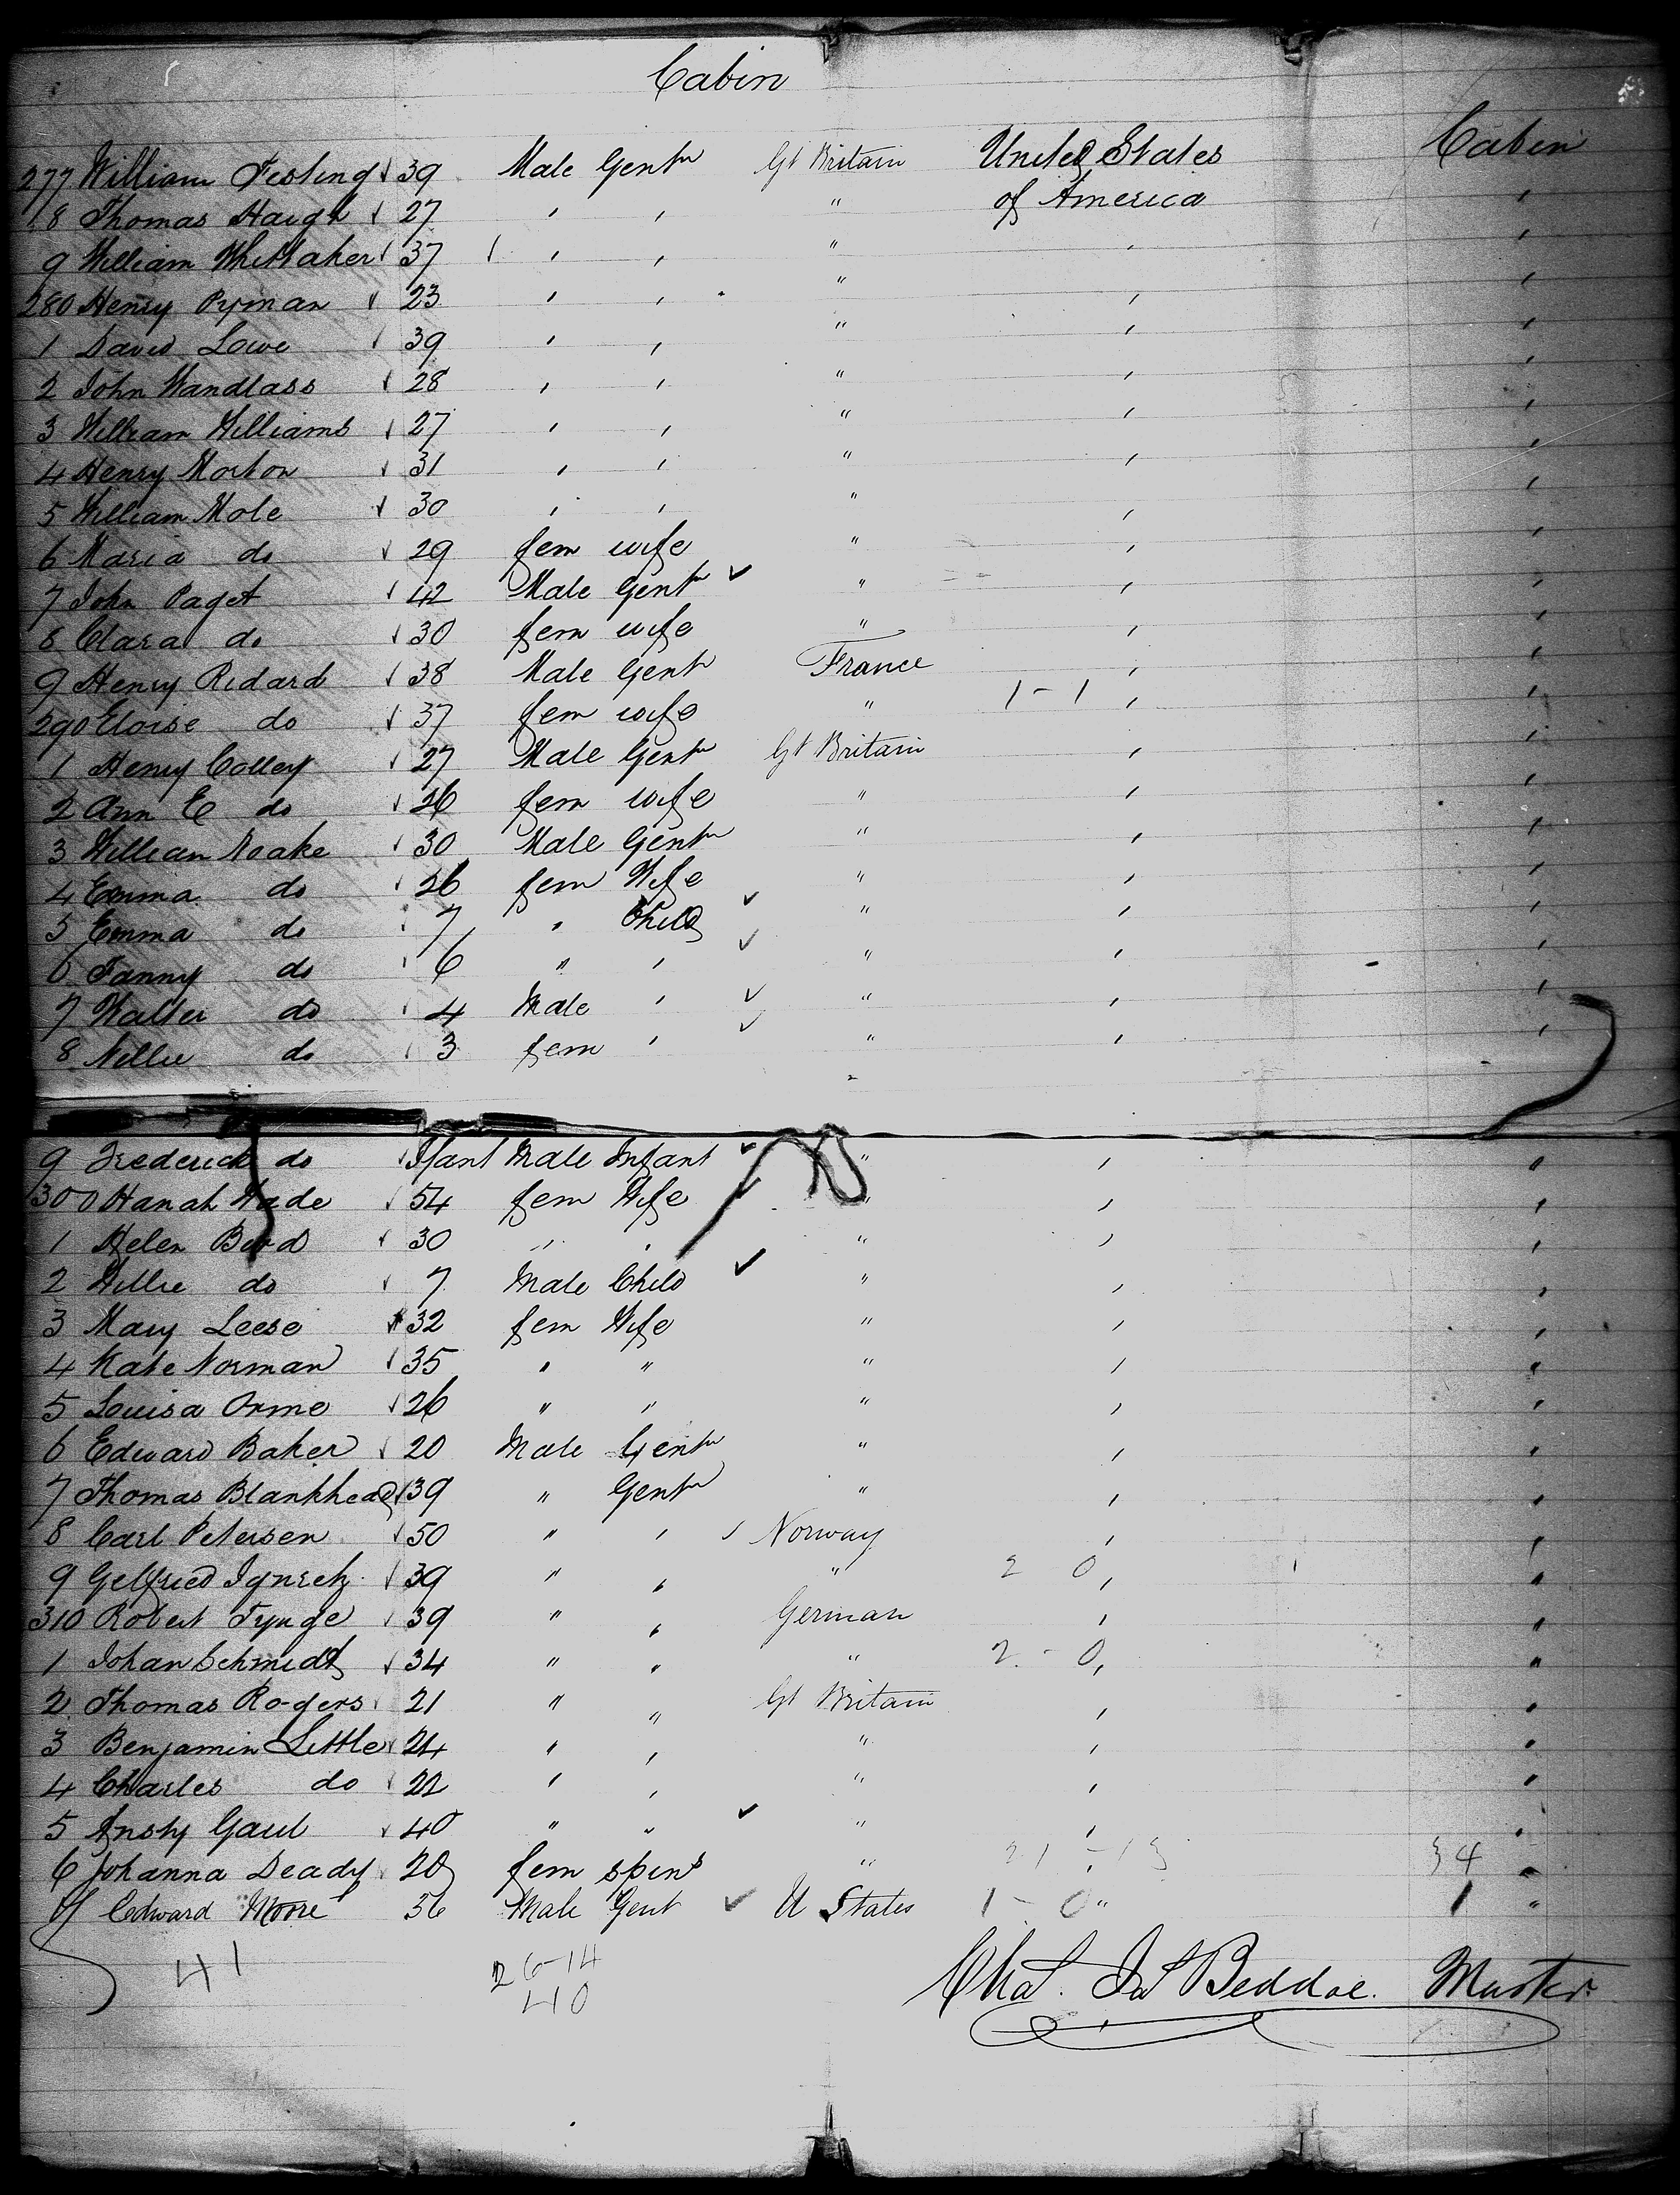 Cabin
277 William Festing 39 Male Gentn Gt Britain United States Cabin
8 Thomas Haigh 27 , , " of America ,
9 William Whittaker 37 , , " , ,
280 Henry Pyman 23 , , " , ,
1 David Lowe 39 , , " , ,
2 John Wandlass 28 , , " , ,
3 William Williams 27 , , " , ,
4 Henry Morton 31 , , " , ,
5 William Mole 30 , , " , ,
6 Maria do 29 fem wife " , ,
7 John Paget 42 Male Gentn " , ,
8 Clara do 30 fem wife " , ,
9 Henry Ridard 38 Male Gentn France , ,
290 Eloise do 37 fem wife " 1-1 , ,
1 Henry Colley 27 Male Gentn Gt Britain , ,
2 Ann E do 26 fem wife " , ,
3 William Noake 30 Male Gentn " , ,
4 Emma do 26 fem Wife " , ,
5 Emma do 7 , Child " , ,
6 Fanny do 6 " , " , ,
7 Walter do 4 Male , " , ,
8 Nellie do 3 fem , " , ,
9 Frederick do Ifant Male Infant " , "
300 Hanah Wade 54 fem Wife " , ,
1 Helen Bird 30 " , " , ,
2 Willie do 7 Male Child " , ,
3 Mary Leese 32 fem Wife " , ,
4 Kate Norman 35 " " " , "
5 Louisa Orme 26 " " " , ,
6 Edward Baker 20 Male Gentn " , "
7 Thomas Blankhead 39 " Gentn " , "
8 Carl Petersen 50 " , Norway , "
9 39 " , " 2 0 , "
310 Robert Tynge 39 " , German , "
1 Johan Schmidt 34 " " " 2 - 0 , "
2 Thomas Rogers 21 " " Gt Britain , "
3 Benjamin Little 24 " , " , "
4 Charles do 22 , , " , "
5 Gaul 40 " " " , "
6 Johanna Deady 20 fem spinr " 21 - 13 34 "
7 Edward Moore 36 Male Gent U States 1 - 0 " 1 "
41 26-14
40
Chas. Beddoe. Master